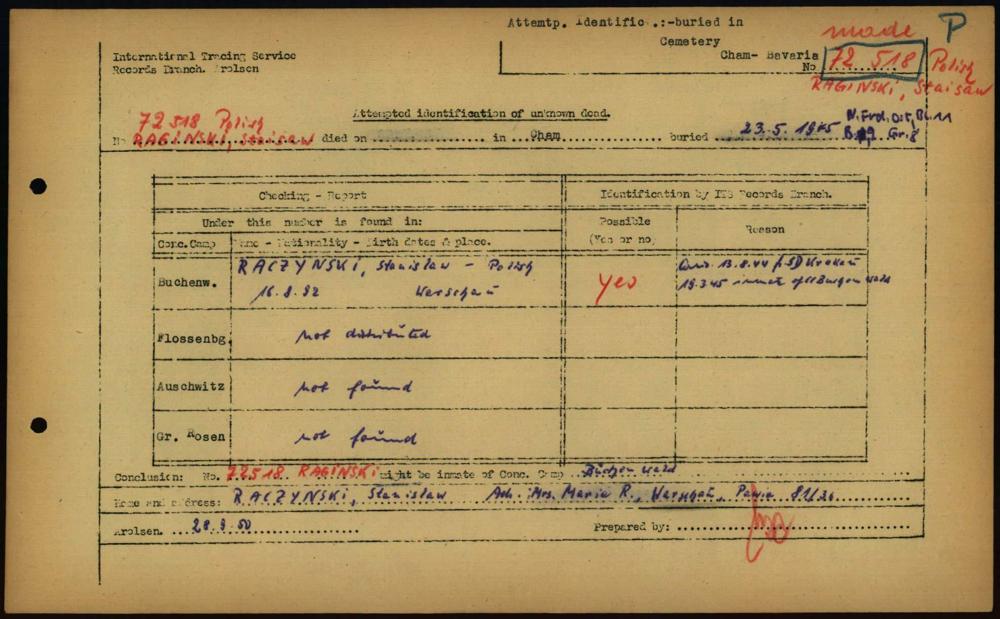 Attemtp. Identific .:-buried in
Cemetery
made P
International Tracing Service
Records Branch. Arolsen
Cham- Bavaria
No 72 518 Polish
RAGINSKI, Staisaw
72518 Polish
Attempted identification of unknown dead.
No RAGINSKI, Staisaw died on in Cham buried 23.5.1945
Checking - Report
Identification by ITS Records Branch.
Under this number is found in:
Possible
(Yes or no)
Reason
Conc.Camp
Name - Nationality - Birth dates & place.
Buchenw.
RACZYNSKI, Stanislaw - Polish
16.8.92 Warschau
yes
13.8.44 SD Krakau
19.3.45 inmate of Buchenwald
Flossenbg.
not distributed
Auschwitz
not found
Gr. Rosen
not found
Conclusion: No. 72518 RAGINSKI might be inmate of Conc. Camp Buchenwald
Name and address: RACZYNSKI, Stanislaw Mrs. Maria R., Warschau,
Arolsen. 28.9.50
Prepared by: